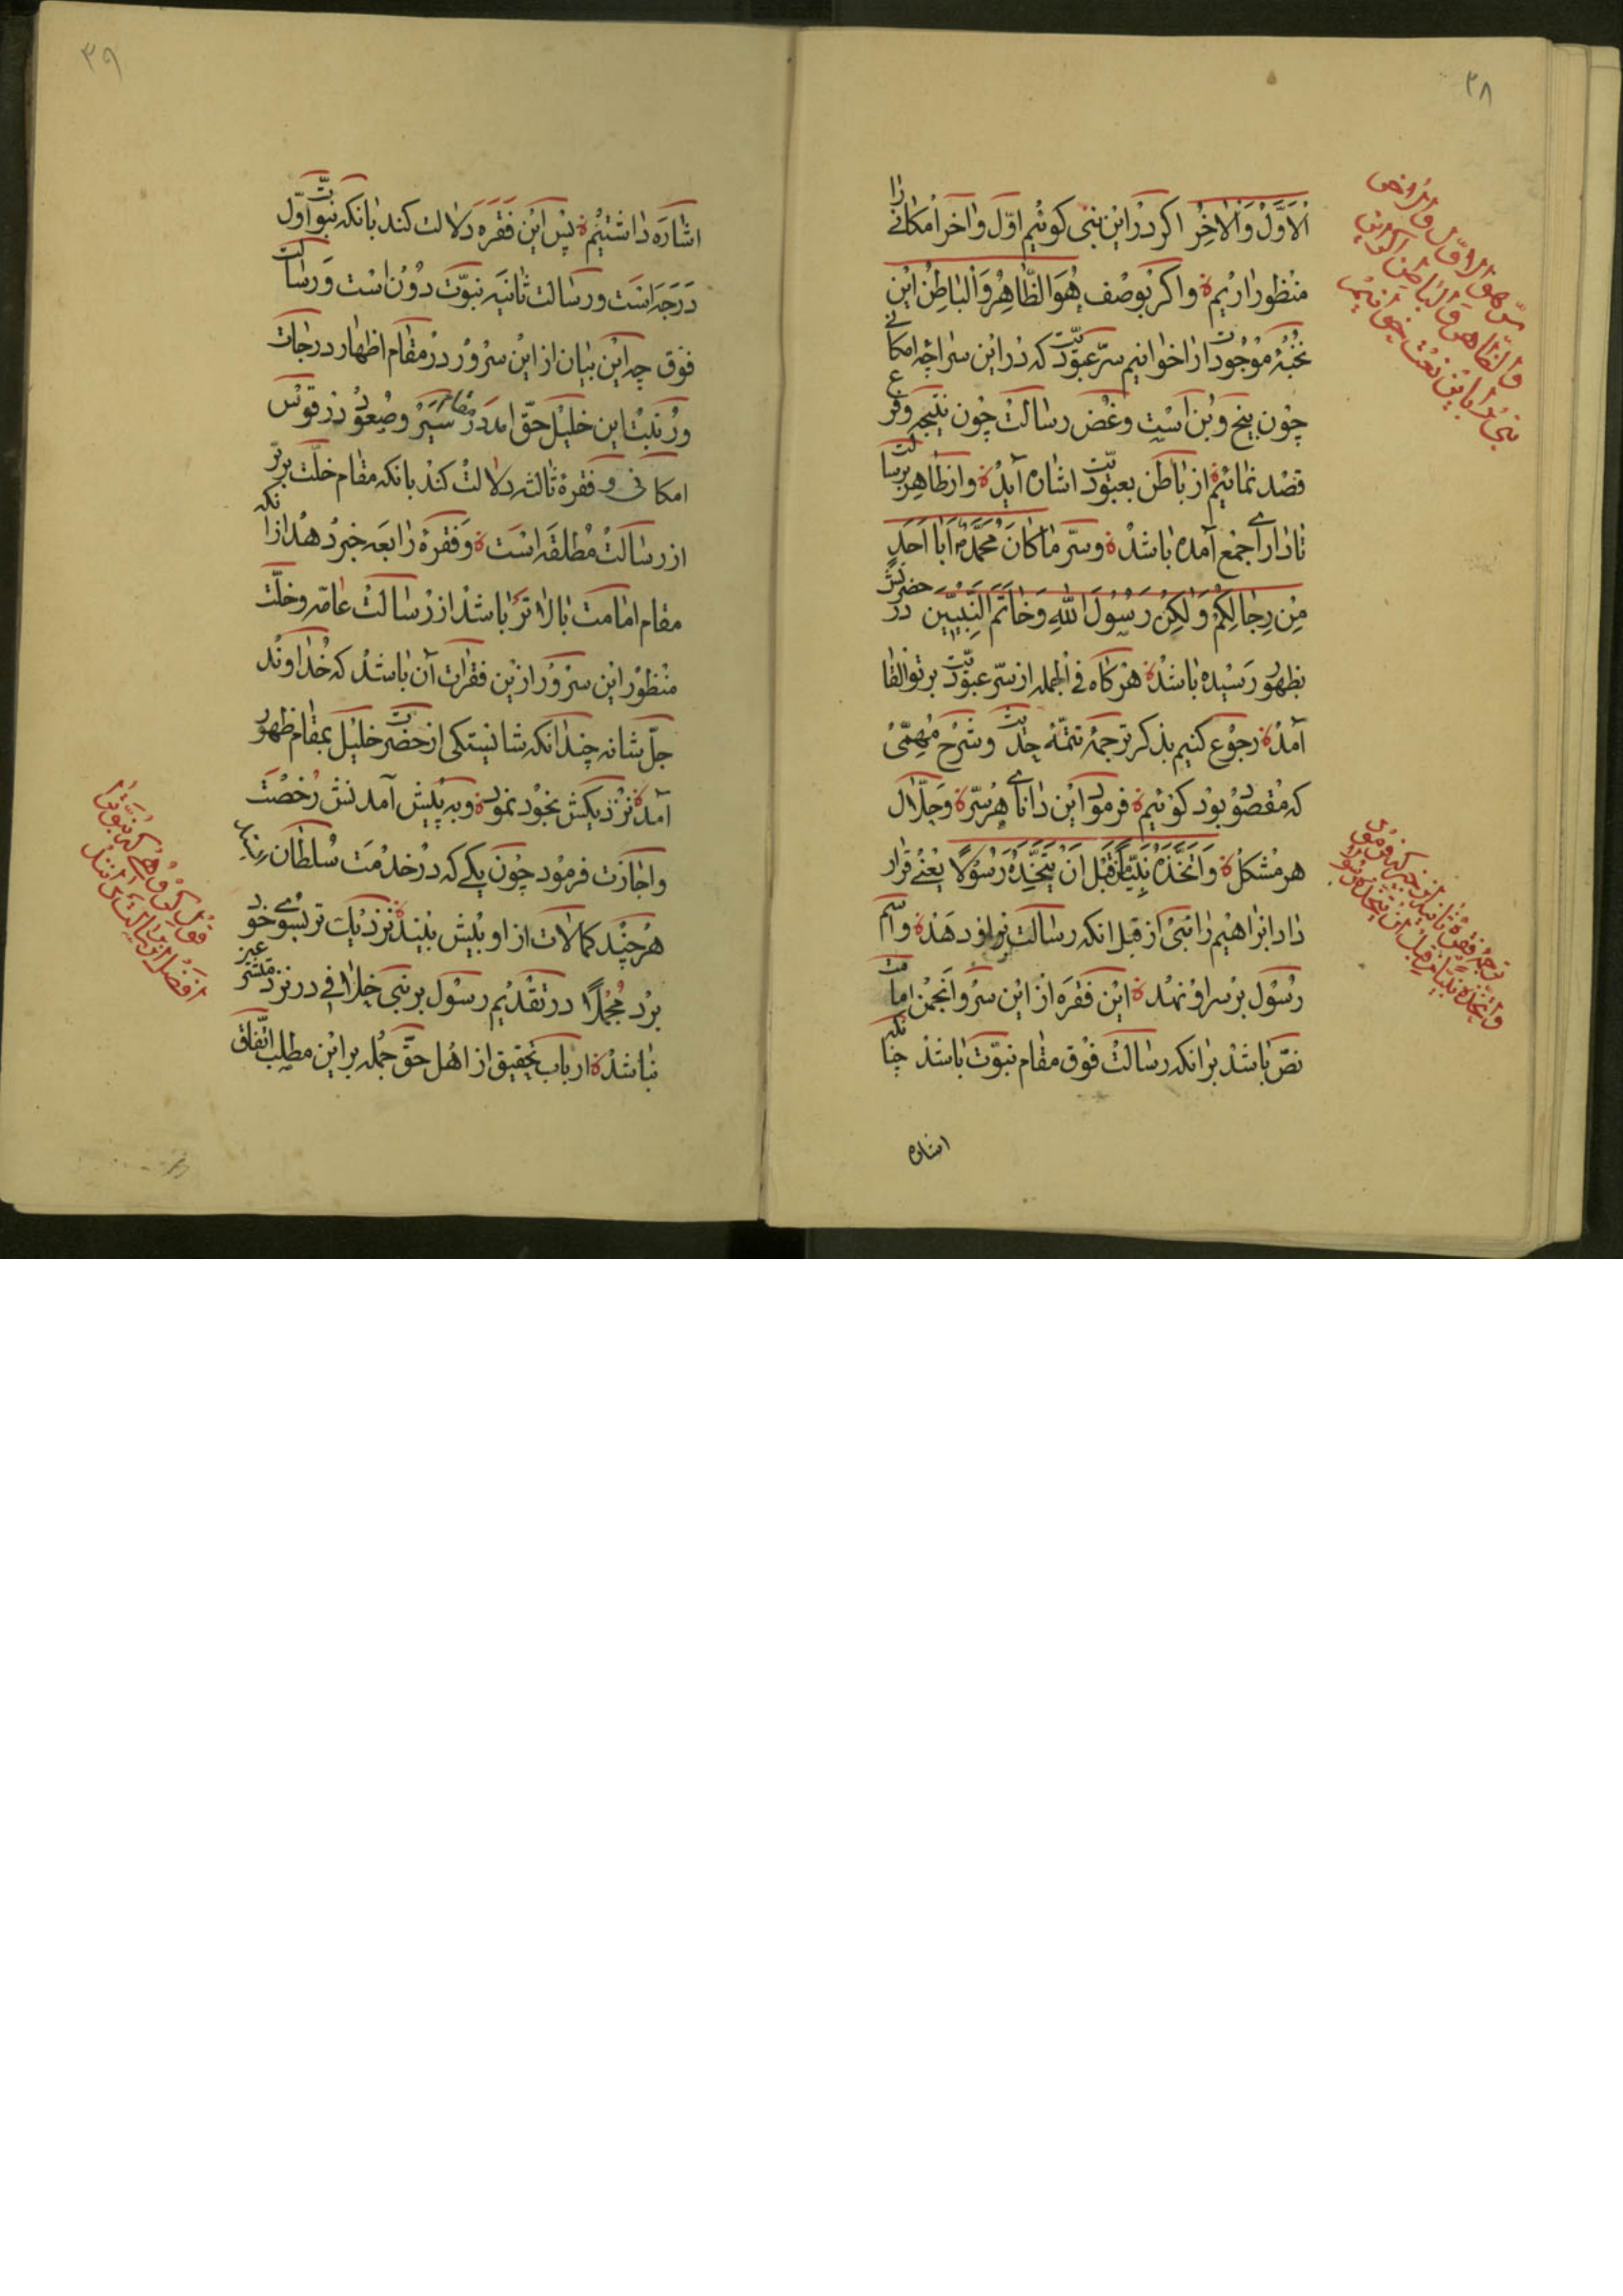 ۳۸
اَلْاَوَّلُ وَالْاٰخِرُ اکر در این نبی کوئیم اوّل و آخر امکانی را
منظور اریم و اکر بوصف هُوَ الظّاهِرُ وَالْباطِنُ این
نخبهٔ موجودات را خوانیم سرّ عبودیّت که در این سراچه امکانی
چون بیخ و بن است و غصن رسالت چون نتیجه و فرع
قصد نمائیم از باطن بعبودیّت اشاره آید و از ظاهر برسالت
تا دارای اجمع آمده باشد و سرّ ما کانَ مُحَمَّدٌ اَبا اَحَدٍ
مِنْ رِجالِکُمْ وَلٰکِنْ رَسُولَ اللّهِ وَخاتَمَ النَّبِیّینَ در حضرتش
بظهور رسیده باشد هرکاه فی الجمله از سرّ عبودیّت بر تو القا
آمد رجوع کنیم بذکر ترجمهٔ تتمّهٔ حدیث و شرح مهمّی
که مقصود بود کوئیم فرمود این دانای هر سرّ و حلّال
هر مشکل وَاتَّخَذَهُ نَبِیًّا قَبْلَ اَنْ یَتَّخِذَهُ رَسُولًا یعنی قرار
داد ابراهیم را نبی از قبل انکه رسالت باو دهد و اسم
رسول بر سر او نهد این فقره از این سرو انجمن امامت
نصّ باشد بر انکه رسالت فوق مقام نبوّت باشد چنانکه
اشاره
سرّ هو الاوّل والاخر
والظاهر والباطن اکر این
نبی را باین نعت خوانیم
ترجمهٔ فقره ثانیه از خبر که فرمود
واتّخذه نبیّا من قبل ان یتّخذه رسولا
۳۹
اشاره داشتیم پس این فقره دلالت کند بانکه نبوّت اوّل
درجه است و رسالت ثانیه نبوّت دون است و رسالت
فوق چه این بیان از این سرور در مقام اظهار درجات
ورتبت این خلیل حقّ امد در مقام سیر و صعود در قوس
امکانی و فقرهٔ ثالثه دلالت کند بانکه مقام خلّت برتر
از رسالت مطلقه است و فقرهٔ رابعه خبر دهد از انکه
مقام امامت بالاتر باشد از رسالت عامّه و خلّت
منظور این سرور از این فقرات آن باشد که خداوند
جلّ شانه چندانکه شایستکی از حضرت خلیل بمقام ظهور
آمد نزدیکش بخود نمود و به پیش آمدنش رخصت
و اجازت فرمود چون یکی که در خدمت سلطان رسد
هر چند کمالات از او بیش بیند نزدیک تر بسوی خود
برد مجملا در تقدیم رسول بر نبی خلافی در نزد متشرعین
نباشد ارباب تحقیق از اهل حقّ جمله بر این مطلب اتّفاق
قول کروهی که نبوّترا
افضل از رسالت دانند